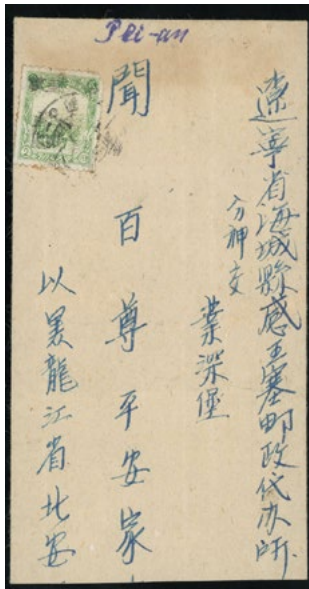 Pei-an
遼寧省海城縣感王塞邮政代办所
分神交
業深堡
聞百尊平安家
以黑龍江省北安